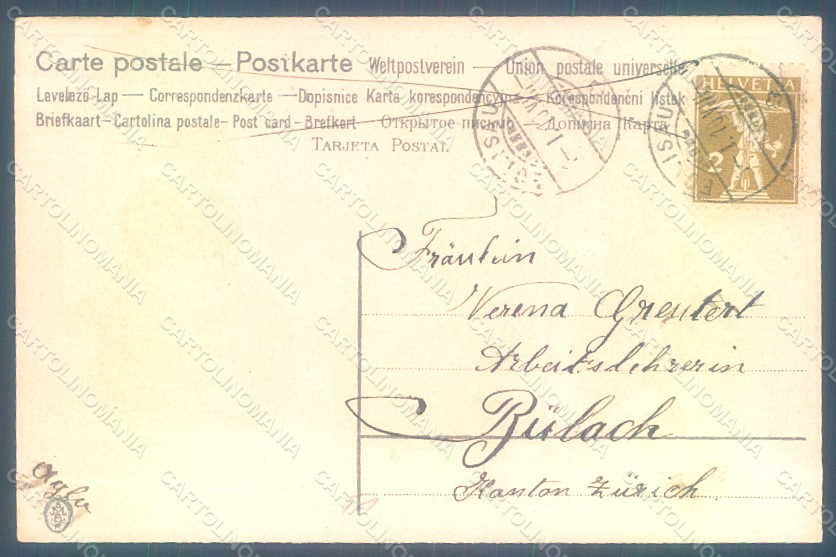 Carte postale — Postkarte Weltpostverein — Union postale universelle
Levelező-Lap — Correspondenzkarte — Dopisnice Karta korespondencyjna — Korespondenční lístek
Briefkaart - Cartolina postale - Post card - Brefkort - Открытое письмо - Дописна Карта
Tarjeta Postal
HELVETIA
2
Fräulein
Verena Greutert
Arbeitslehrerin
Bülach
Kanton Zürich.
CARTOLINOMANIA